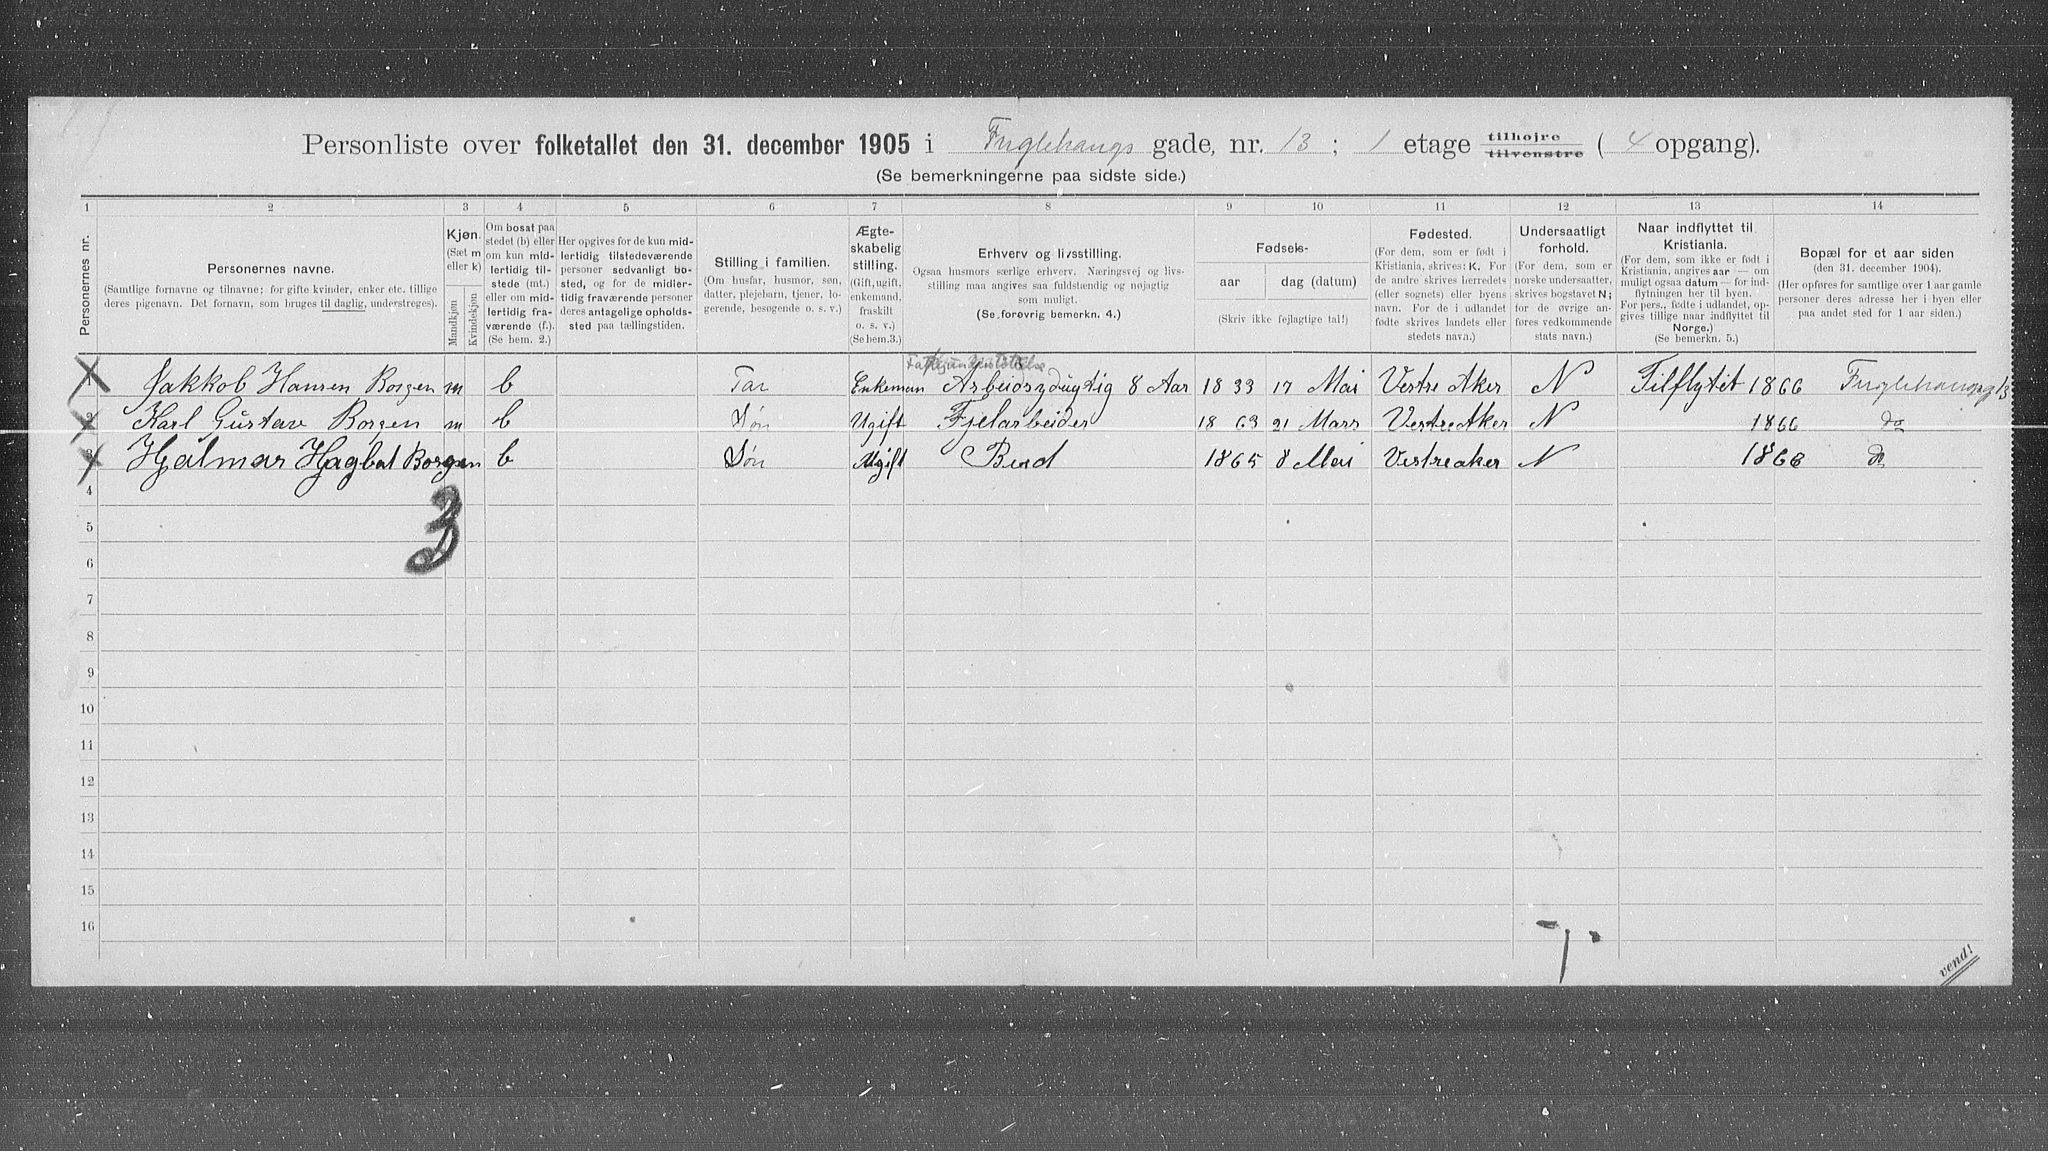 Personliste over folketallet den 31. december 1905 i Fuglehaugs gade, nr. 13 ; 1 etage tilhøjre tilvenstre ( 4 opgang).
(Se bemerkningerne paa sidste side.)
1 2 3 4 5 6 7 8 9 10 11 12 13 14
Personernes nr.
Personernes navne.
(Samtlige fornavne og tilnavne; for gifte kvinder, enker etc. tillige
deres pigenavn. Det fornavn, som bruges til daglig, understreges).
Kjøn.
(Sæt m
eller k)
Mandkjøn
Kvindekjøn
Om bosat paa
stedet (b) eller
om kun mid-
lertidig til-
stede (mt.)
eller om mid-
lertidig fra-
værende (f.).
(Se bem. 2.)
Her opgives for de kun mid-
lertidig tilstedeværende
personer sedvanligt bo-
sted, og for de midler-
tidig fraværende personer
deres antagelige opholds-
sted paa tællingstiden.
Stilling i familien.
(Om husfar, husmor, søn,
datter, plejebarn, tjener, lo-
gerende, besøgende o. s. v.)
Ægte-
skabelig
stilling.
(Gift, ugift,
enkemand,
fraskilt
o. s. v.)
(Se bem. 3.)
Erhverv og livsstilling.
Ogsaa husmors særlige erhverv. Næringsvej og livs-
stilling maa angives saa fuldstændig og nøjagtig
som muligt.
(Se forøvrig bemerkn. 4.)
Fødsels-
aar dag (datum)
(Skriv ikke fejlagtige tal!)
Fødested.
(For dem, som er født i
Kristiania, skrives: K. For
de andre skrives herredets
(eller sognets) eller byens
navn. For de i udlandet
fødte skrives landets eller
stedets navn.)
Undersaatligt
forhold.
(For dem, som er
norske undersaatter,
skrives bogstavet N;
for de øvrige an-
føres vedkommende
stats navn.)
Naar indflyttet til
Kristiania.
(For dem, som ikke er født i
Kristiania, angives aar — om
muligt ogsaa datum — for ind-
flytningen her til byen.
For pers., fødte i udlandet, op-
gives tillige naar indflyttet til
Norge.)
(Se bemerkn. 5.)
Bopæl for et aar siden
(den 31. december 1904).
(Her opføres for samtlige over 1 aar gamle
personer deres adresse her i byen eller
paa andet sted for 1 aar siden.)
1 Jakkob Hansen Borgen m b Far Enkeman Arbeidsydugtig 8 Aar 1833 17 Mai Vestre Aker N Tilflytet 1866 Fuglehaugsg 13
2 Karl Gustav Borgen m b Søn Ugift Fjelarbeider 1863 21 Mars Vestre Aker N 1866 do
3 Hjalmar Hagbat Borgen b Søn Ugift Bud 1865 8 Mai Vestreaker N 1866 do
3
4
5
6
7
8
9
10
11
12
13
14
15
16
vend!